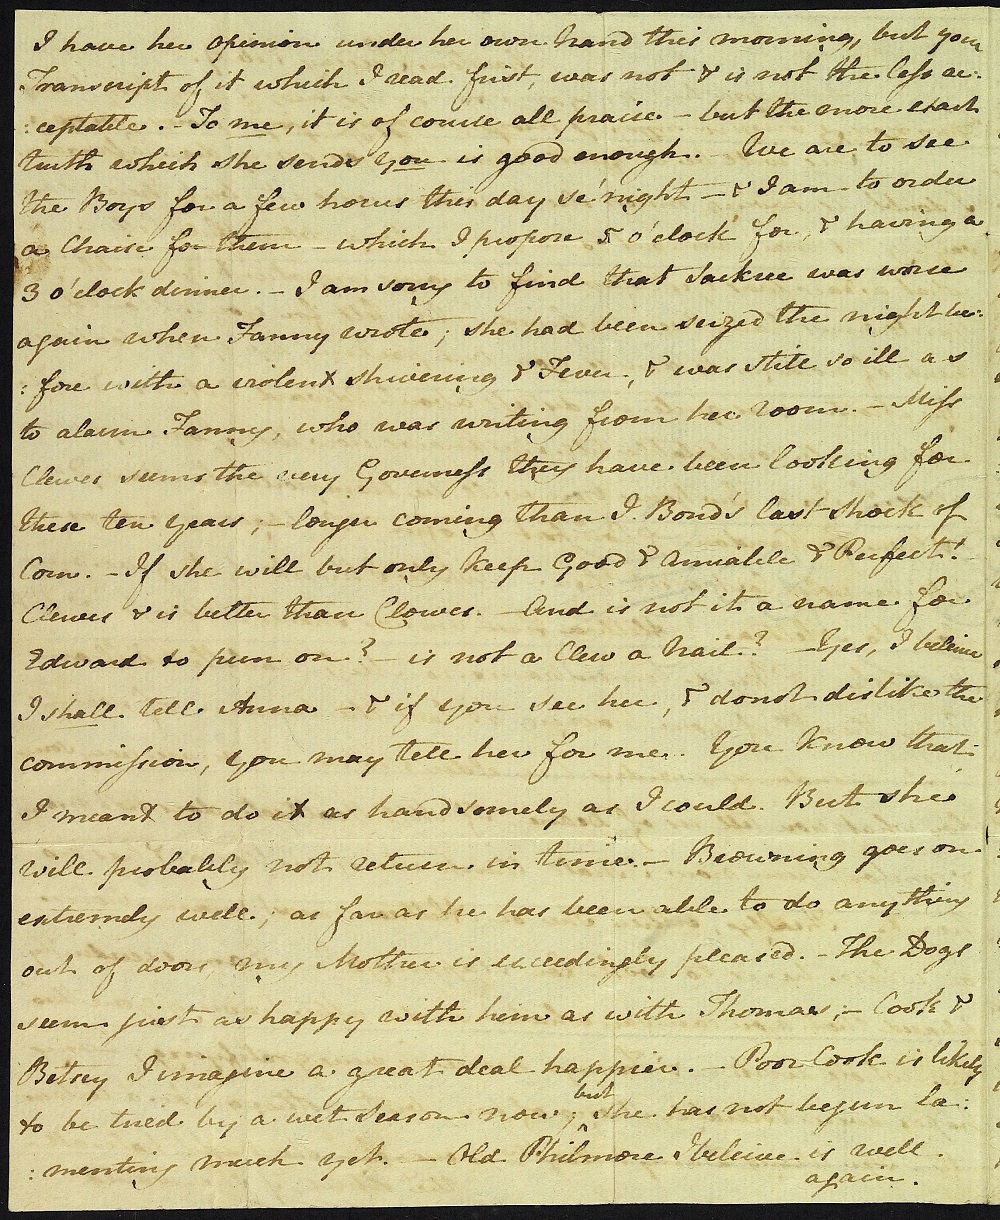 I have her opinion under her own hand this morning, but your
Transcript of it which I read first, was not & is not the less ac:
:ceptable. - To me, it is of course all praise - but the more exact
truth which she sends you is good enough. - We are to see
the Boys for a few hours this day se'night - & I am to order
a Chaise for them - which I propose 5 o'clock for, & having a
3 o'clock dinner. - I am sorry to find that Sackree was worse
again when Fanny wrote; she had been seized the night be:
:fore with a violent shivering & Fever, & was still so ill as
to alarm Fanny, who was writing from her room. - Miss
Clewes seems the very Governess they have been looking for
these ten years; - longer coming than J. Bond's last Shock of
Corn. - If she will but only keep Good & Amiable & Perfect!
Clewes & is better than Clowes. - And is not it a name for
Edward to pun on? - is not a Clew a Nail? - Yes, I beleive
I shall tell Anna - & if you see her, & donot dislike the
commission, you may tell her for me. You know that
I meant to do it as handsomely as I could. But she
will probably not return in time. - Browning goes on
extremely well; as far as he has been able to do anything
out of doors my Mother is exceedingly pleased. - The Dogs
seem just as happy with him as with Thomas; - Cook &
Betsey I imagine a great deal happier. - Poor Cook is likely
to be tried by a wet Season now; but she has not begun la:
:menting much yet. - Old Philmore I beleive is well
again.